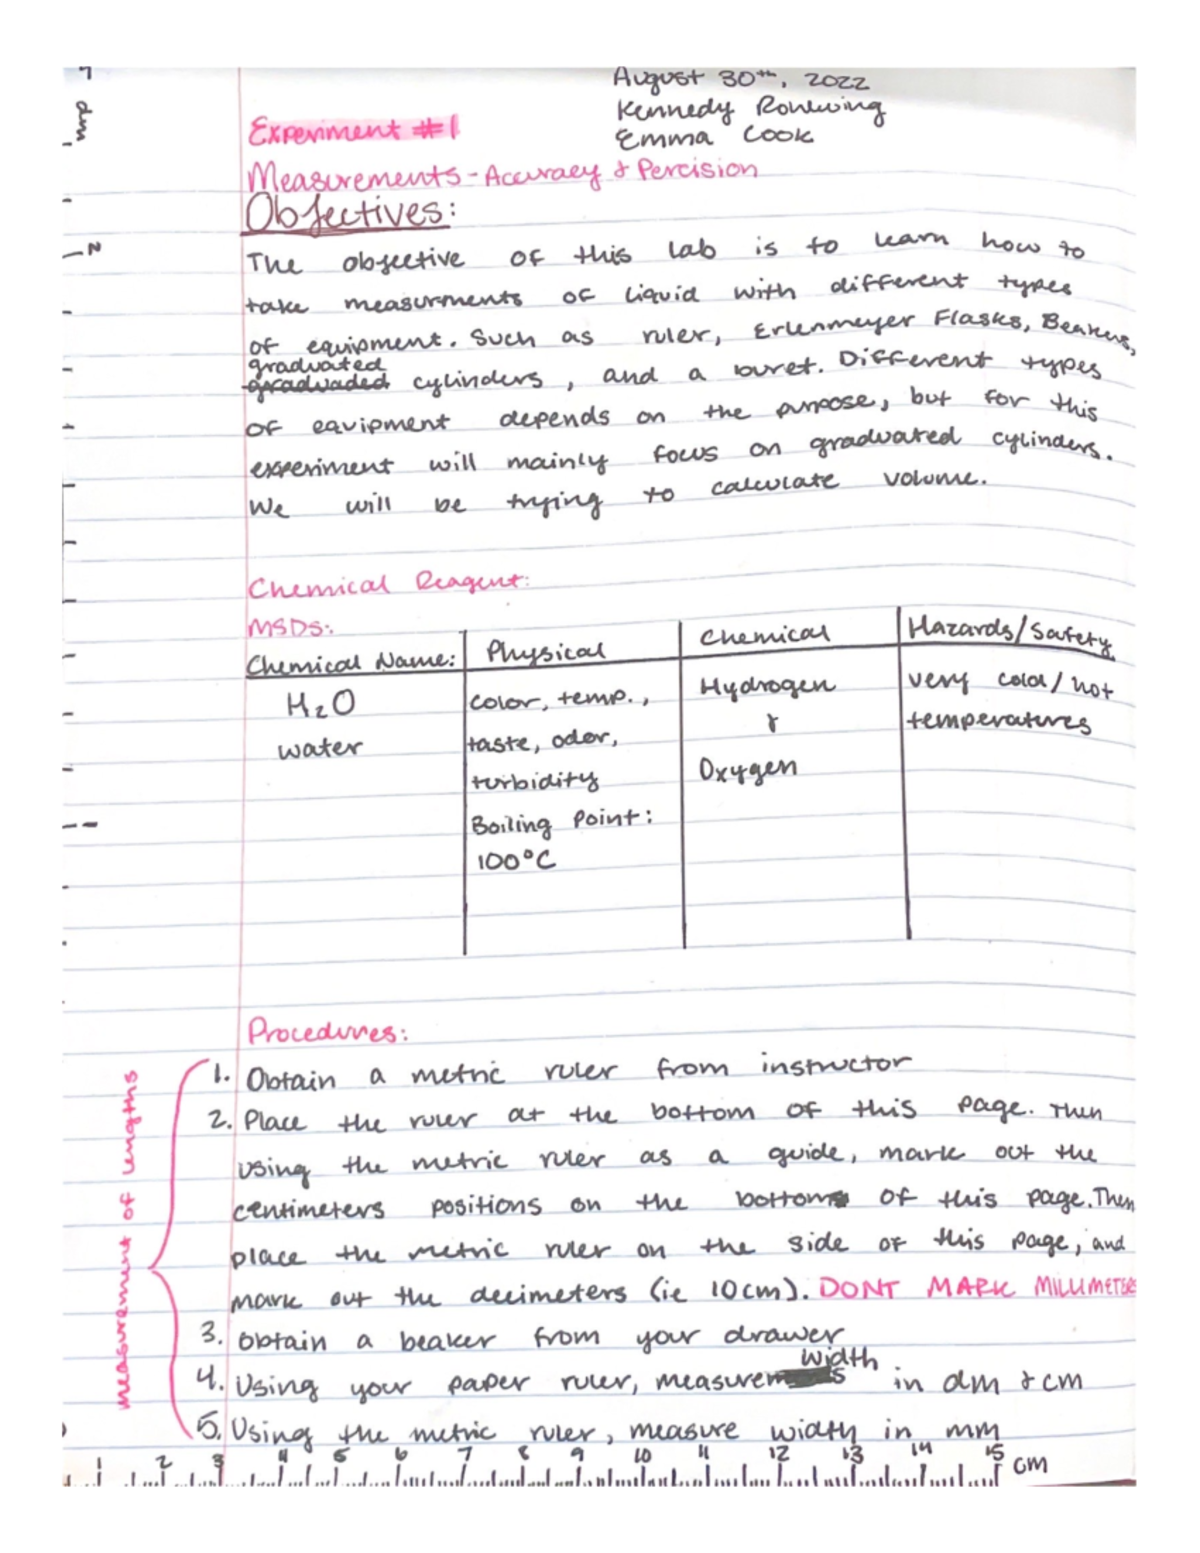 August 30th, 2022
Kennedy Rohlwing
Emma Cook
Experiment #1
Measurements - Accuracy & Percision
Objectives:
The objective of this lab is to learn how to
take measurments of liquid with different types
of equipment. Such as ruler, Erlenmeyer Flasks, Beakers,
graduated
graduaded cylinders, and a buret. Different types
of equipment depends on the purpose, but for this
experiment will mainly focus on graduated cylinders.
We will be trying to calculate volume.
Chemical Reagent:
MSDS:
Chemical Name: Physical Chemical Hazards/Safety
H2O color, temp., Hydrogen very cold/hot
water taste, odor, & temperatures
turbidity Oxygen
Boiling Point:
100°C
Procedures:
measurement of lengths
1. Obtain a metric ruler from instructor
2. Place the ruler at the bottom of this page. Then
using the metric ruler as a guide, mark out the
centimeters positions on the bottom of this page. Then
place the metric ruler on the side of this page, and
mark out the decimeters (ie 10cm). DONT MARK MILLIMETERS
3. Obtain a beaker from your drawer
4. Using your paper ruler, measure width in dm & cm
5. Using the metric ruler, measure width in mm
1 2 3 4 5 6 7 8 9 10 11 12 13 14 15 cm
dm
2